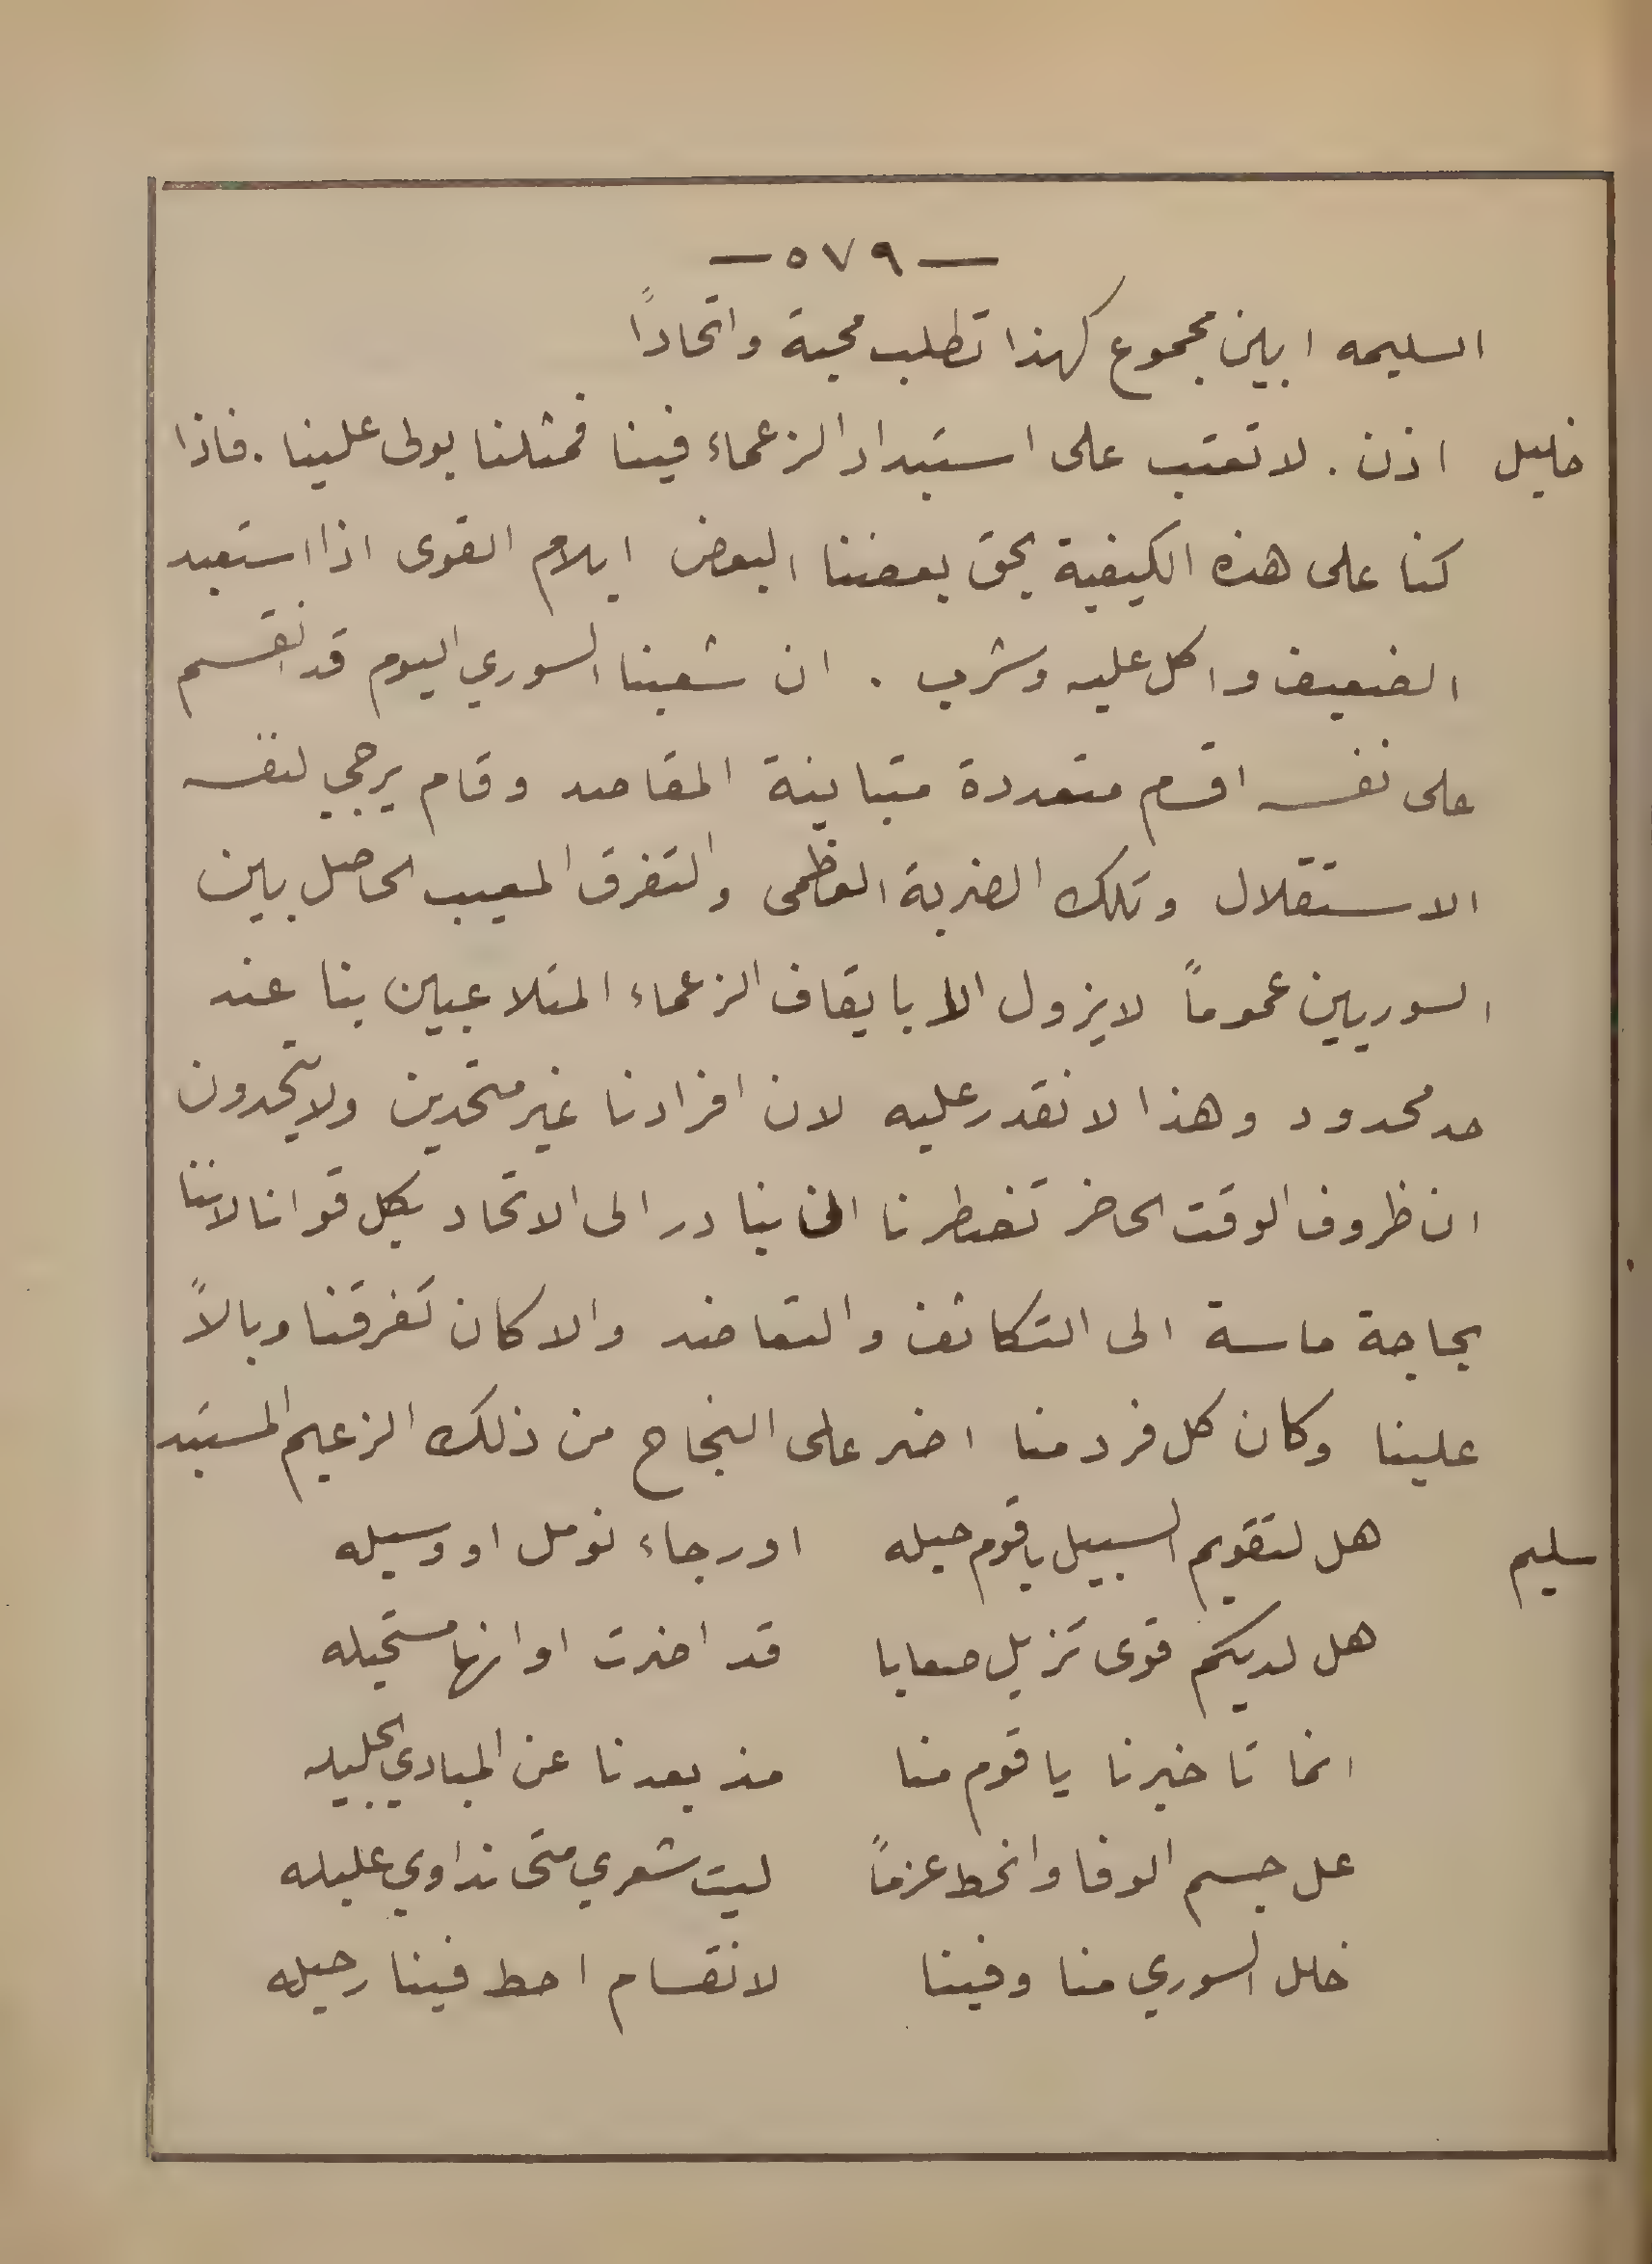 — ٥٧٩ —
السليمه ابين مجموع كهذا تطلب محبة واتحاداً
خليل اذن . لا تعتب على استبداد الزعماء فينا فمثلنا يولى علينا . فاذا
كنا على هذه الكيفية بحق بعضنا البعض ايلام القوى اذا استعبد
الضعيف واكل عليه وشرب . ان شعبنا السوري اليوم قد انقسم
على نفسه اقسام متعددة متباينة المقاصد وقام يرجي لنفسه
الاستقلال وتلك الضربة العظمى والتفرق المعيب الحاصل بين
السوريين عموماً لا يزول الا بايقاف الزعماء المتلاعبين بنا عند
حد محدود وهذا لا نقدر عليه لان افرادنا غير متحدين ولا يتحدون
ان ظروف الوقت الحاضر تضطرنا الى ان نبادر الى الاتحاد بكل قوانا لاننا
بحاجة ماسة الى التكاتف والتعاضد والا كان تفرقنا وبالاً
علينا وكان كل فرد منا اضر على النجاح من ذلك الزعيم المستبد
سليم هل لتقويم السبيل يا قوم حيله اورجاء نومل او وسيله
هل لديكم قوى تزيل صعابا قد اضرت او انها مستحيله
انما تاخيرنا يا قوم منا مذ بعدنا عن المبادي الجليله
عل جسم الوفا وانحط عزماً ليت شعري متى نداوي عليله
خلل السوري منا وفينا لانقسام احط فينا رحيله